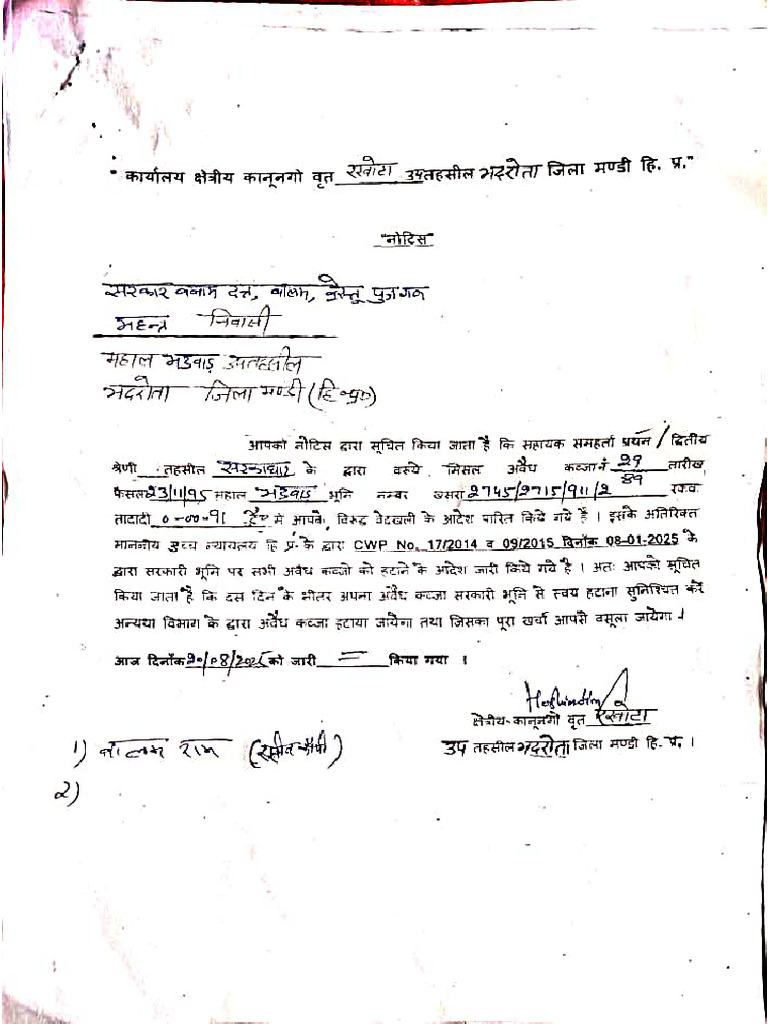 "कार्यालय क्षेत्रीय कानूनगो वृत रखोटा उपतहसील भदरोता जिला मण्डी हि. प्र."
"नोटिस"
सरकार बनाम दत्त, बालम, पुत्रगण
निवासी
महाल भडवाड़ उपतहसील
भदरोता जिला मण्डी (हि0प्र0)
आपको नोटिस द्वारा सूचित किया जाता है कि सहायक समहर्ता प्रथम / द्वितीय
श्रेणी तहसील सरकाघाट के द्वारा वरुये मिसल अवैध कब्जानं 29/89 तारीख
फैसला 23/11/95 महाल भडवाड़ भूमि नम्बर खसरा 2745/2715/911/2 रकवा
तादादी 0-00-91 हैक्ट में आपके विरूद्ध वेदखली के आदेश पारित किये गये है । इसके अतिरिक्त
माननीय उच्च न्यायलय हि प्र. के द्वारा CWP No. 17/2014 व 09/2015 दिनॉक 08-01-2025 के
द्वारा सरकारी भूमि पर सभी अवैध कब्जो को हटाने के आदेश जारी किये गये है । अतः आपको सूचित
किया जाता है कि दस दिन के भीतर अपना अवैध कब्जा सरकारी भूमि से स्वय हटाना सुनिश्चित करें
अन्यथा विभाग के द्वारा अवैध कब्जा हटाया जायेगा तथा जिसका पूरा खर्चा आपसे वसूला जायेगा ।
आज दिनॉक 20/08/2025 को जारी = किया गया ।
क्षेत्रीय कानूनगो वृत रखोटा
उप तहसील भदरोता जिला मण्डी हि. प्र. ।
1) बालम राम
2)